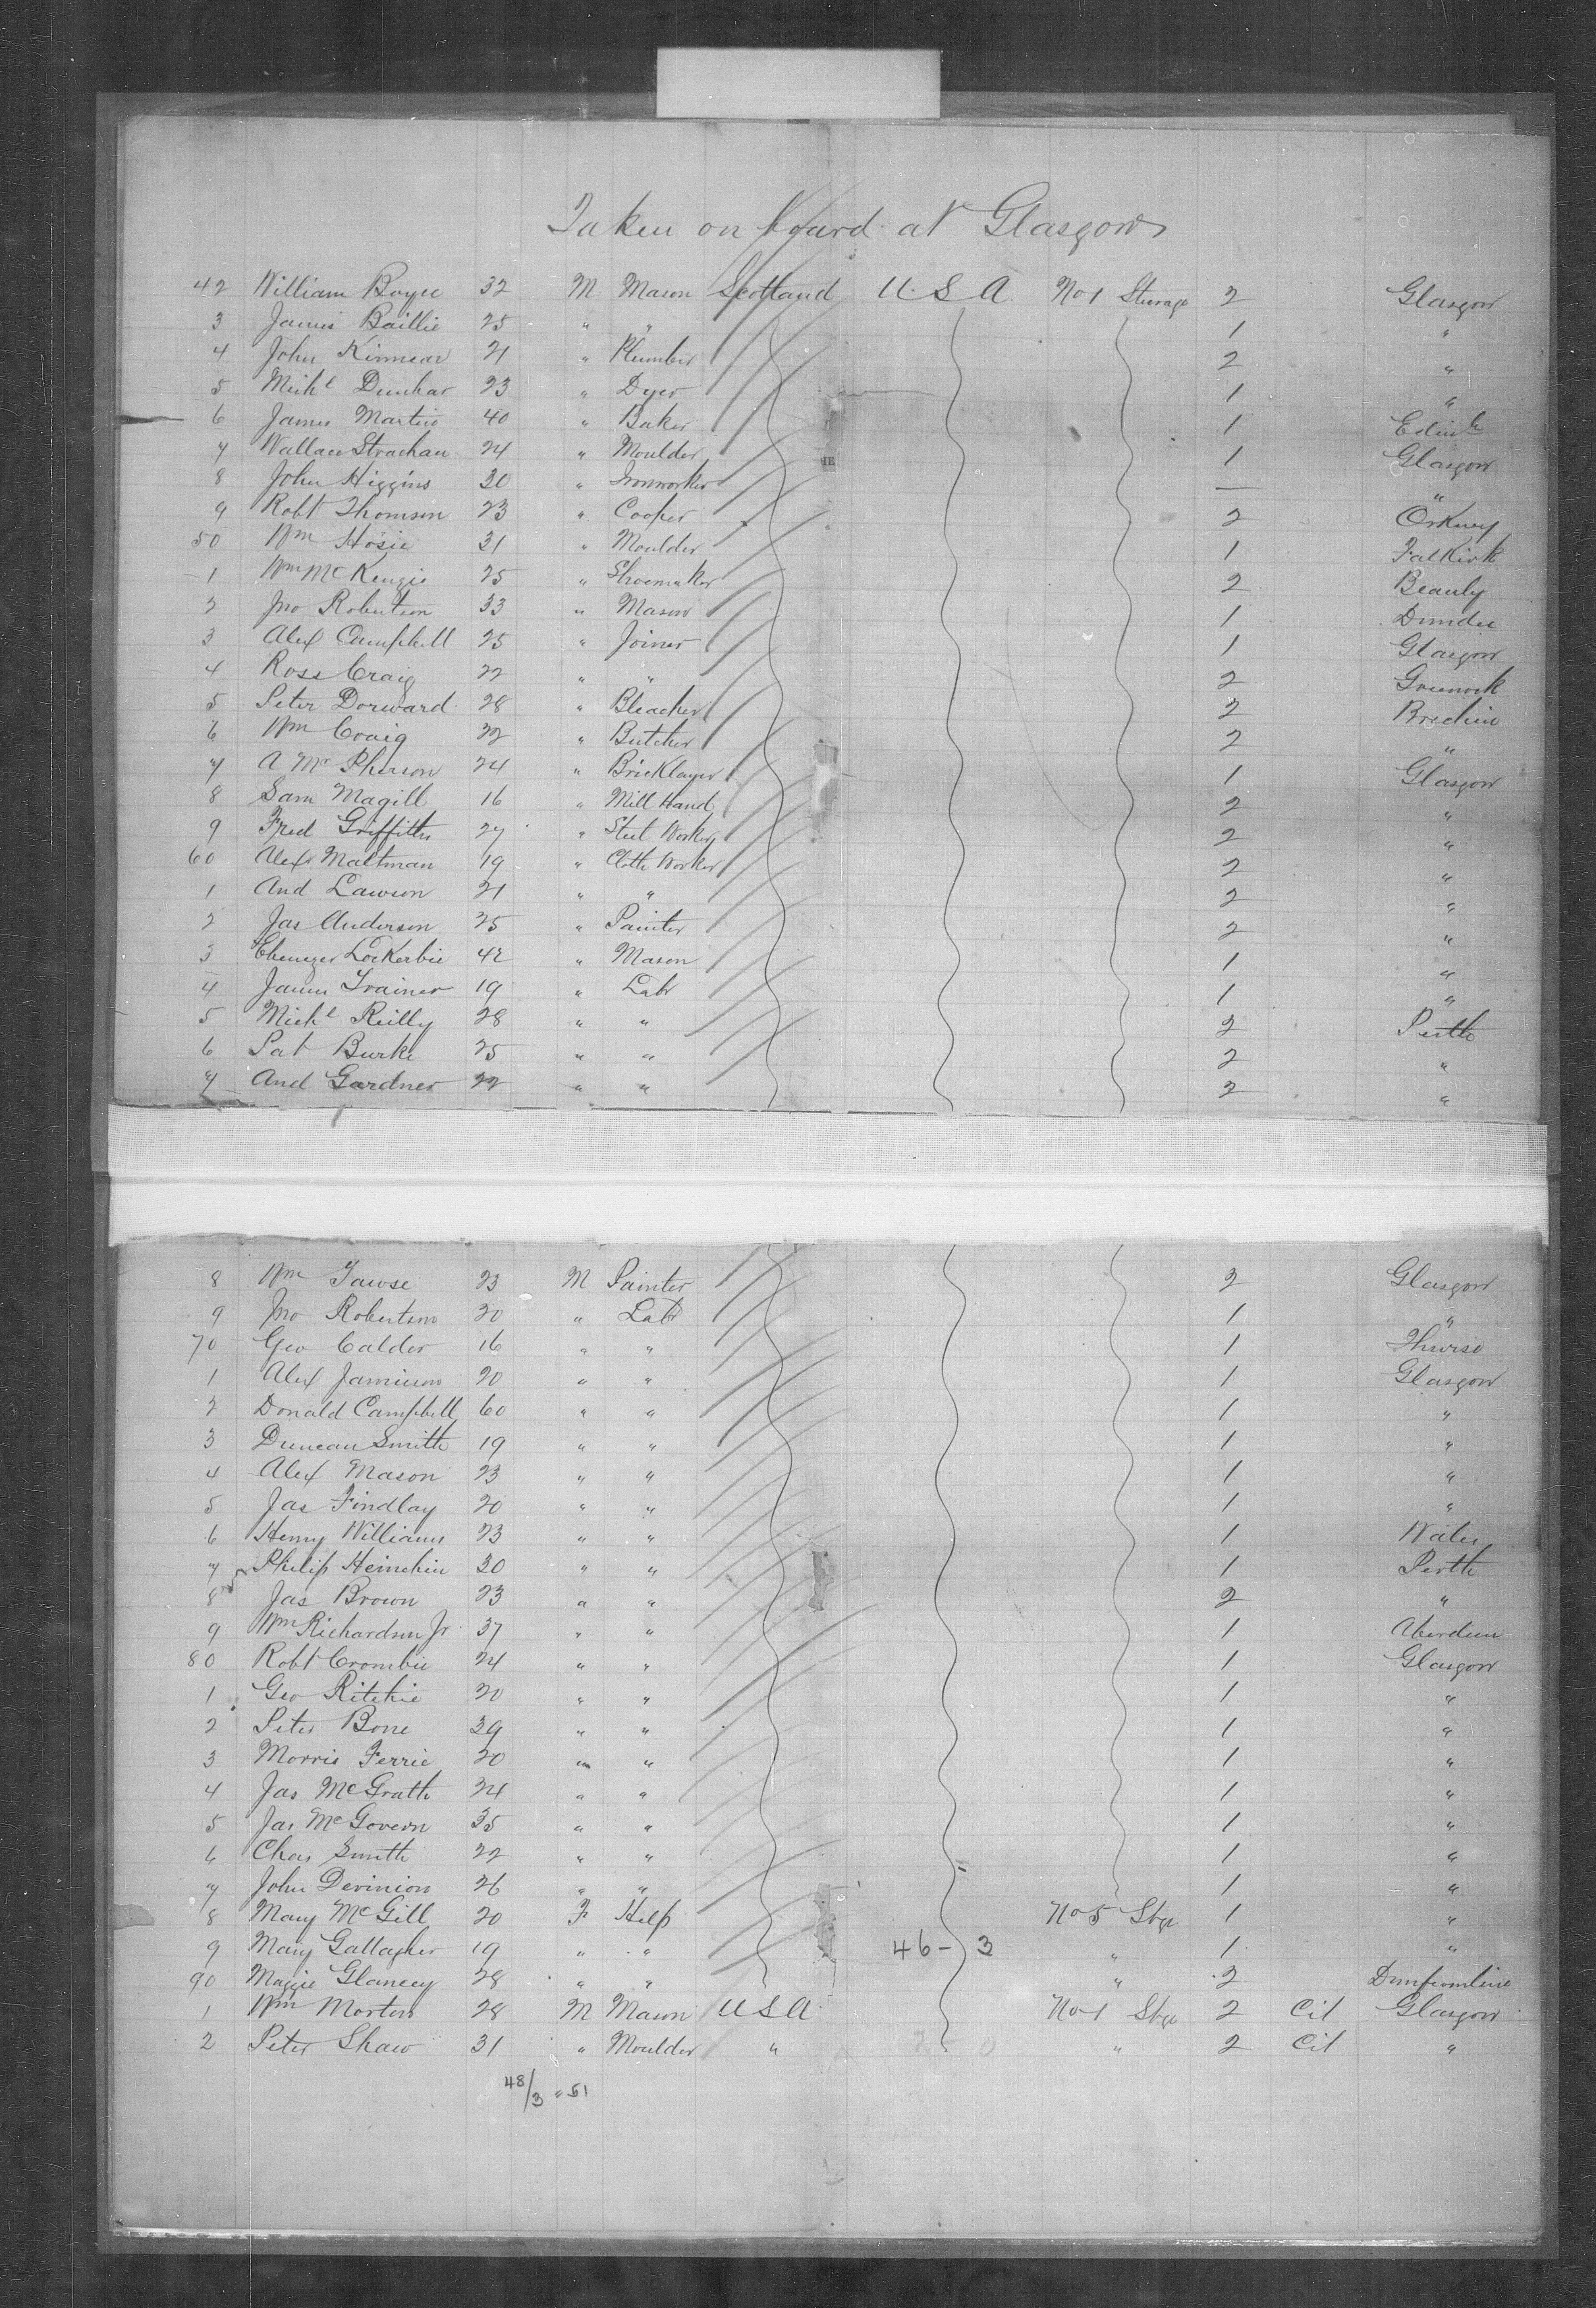 Taken on board at Glasgow
42 William Boyce 32 M Mason Scotland U.S.A. No 1 Sterage 2 Glasgow
3 James Baillie 25 " " 1 "
4 John Kinnear 21 " Plumber 2 "
5 Michl Dunbar 23 " Dyer 1 "
6 James Martin 40 " Baker 1 Edinh
7 Wallace Strachan 24 " Moulder 1 Glasgow
8 John Higgins 30 " Ironworker — "
9 Robt Thomson 23 " Cooper 2 Orkney
50 Wm Hosie 31 " Moulder 1 Falkirk
1 Wm McKenzie 25 " Shoemaker 2 Beauly
2 Jno Robertson 33 " Mason 1 Dundee
3 Alex Campbell 25 " Joiner 1 Glasgow
4 Ross Craig 22 " " 2 Greenock
5 Peter Dorward 28 " Bleacher 2 Brechin
6 Wm Craig 32 " Butcher 2 "
7 A McPherson 24 " Bricklayer 1 Glasgow
8 Sam Magill 16 " Mill Hand 2 "
9 Fred Griffiths 27 " Steel Worker 2 "
60 Alex Maltman 19 " Cloth Worker 2 "
1 And Lawson 21 " " 2 "
2 Jas Anderson 25 " Painter 2 "
3 Ebenezer Lockerbie 42 " Mason 1 "
4 James Trainer 19 " Labr 1 "
5 Michl Reilly 28 " " 2 Perth
6 Pat Burke 25 " " 2 "
7 And Gardner 22 " " 2 "
8 Wm Tawse 23 M Painter 2 Glasgow
9 Jno Robertson 20 " Labr 1 "
70 Geo Calder 16 " " 1 Thurso
1 Alex Jamieson 20 " " 1 Glasgow
2 Donald Campbell 60 " " 1 "
3 Duncan Smith 19 " " 1 "
4 Alex Mason 23 " " 1 "
5 Jas Findlay 20 " " 1 "
6 Henry Williams 23 " " 1 Wales
7 Philip Heinchin 30 " " 1 Perth
8 Jas Brown 23 " " 2 "
9 Wm Richardson Jr 37 " " 1 Aberdeen
80 Robt Crombie 24 " " 1 Glasgow
1 Geo Ritchie 20 " " 1 "
2 Peter Bone 39 " " 1 "
3 Morris Ferrie 20 " " 1 "
4 Jas McGrath 24 " " 1 "
5 Jas McGovern 35 " " 1 "
6 Chas Smith 22 " " 1 "
7 John Devinion 26 " " 1 "
8 Mary McGill 20 F Help No 5 Stge 1 "
9 Mary Gallagher 19 " " 46-3 " 1 "
90 Maggie Glancey 28 " " " 2 Dunfermline
1 Wm Morton 28 M Mason U S A No 1 Stge 2 Cit Glasgow
2 Peter Shaw 31 " Moulder " 2-0 " 2 Cit "
48/3 " 51